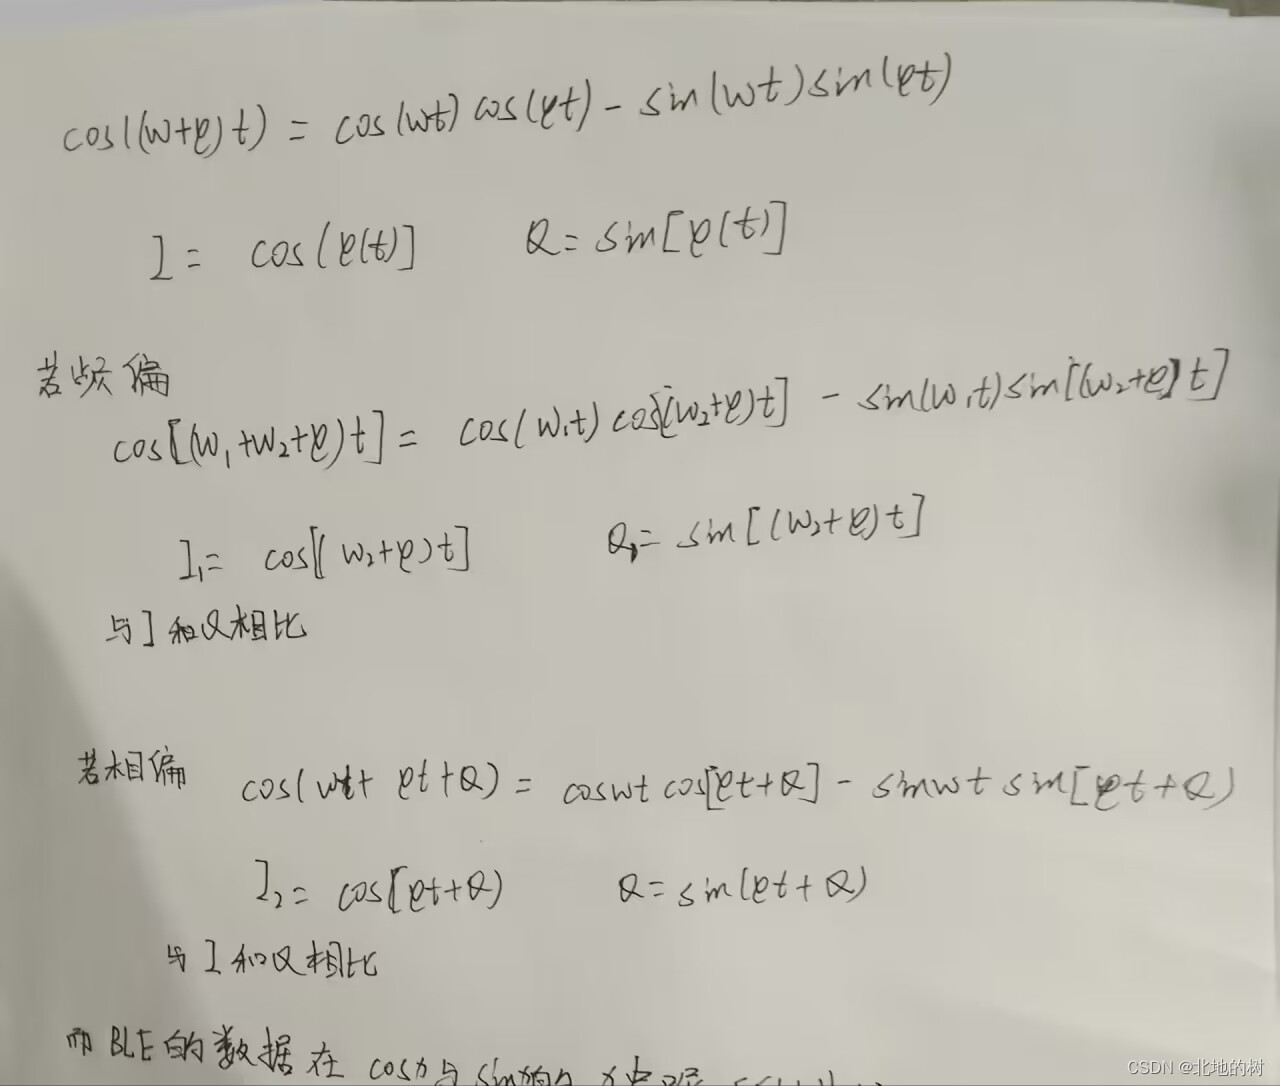 cos((w+φ)t) = cos(wt) cos(φt) - sin(wt)sin(φt)
I = cos(φ(t)] Q = sin[φ(t)]
若频偏
cos[(w₁+w₂+φ)t] = cos(w₁t) cos[(w₂+φ)t] - sin(w₁t)sin[(w₂+φ]t]
I₁= cos[(w₂+φ)t] Q₁= sin[(w₂+φ)t]
与I和Q相比
若相偏 cos(wt+ φt+Q) = coswt cos[φt+Q] - sinwt sin[φt+Q)
I₂= cos[φt+Q) Q=sin(φt+Q)
与I和Q相比
而BLE的数据在 cosx与sinx的
CSDN @北地的树